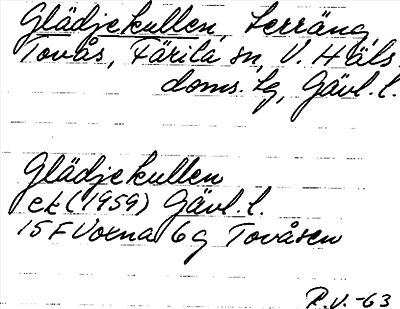 Glädjekullen, terräng,
Tovås, Färila sn, V. Häls.
doms. sg, Gävl. l.
Glädjekullen
ek (1959) Gävl. l.
15F Voxna 6g Tovåsen
R.V. -63